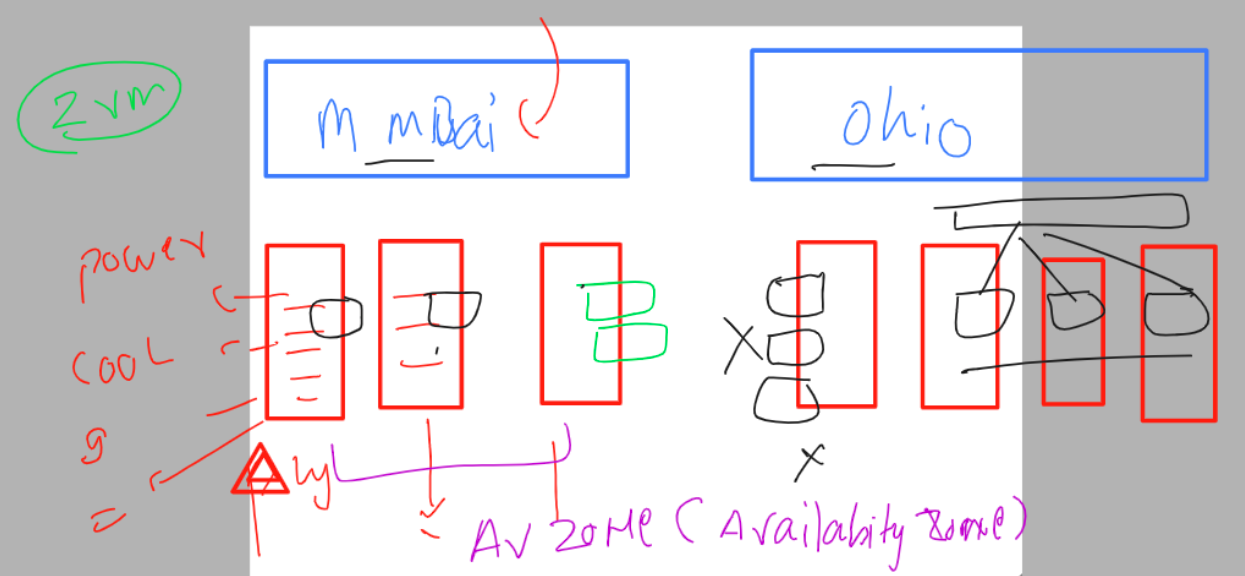 2 vm
M mBai
Ohio
power
COOL
g
AV ZONe (Availabity Zone)